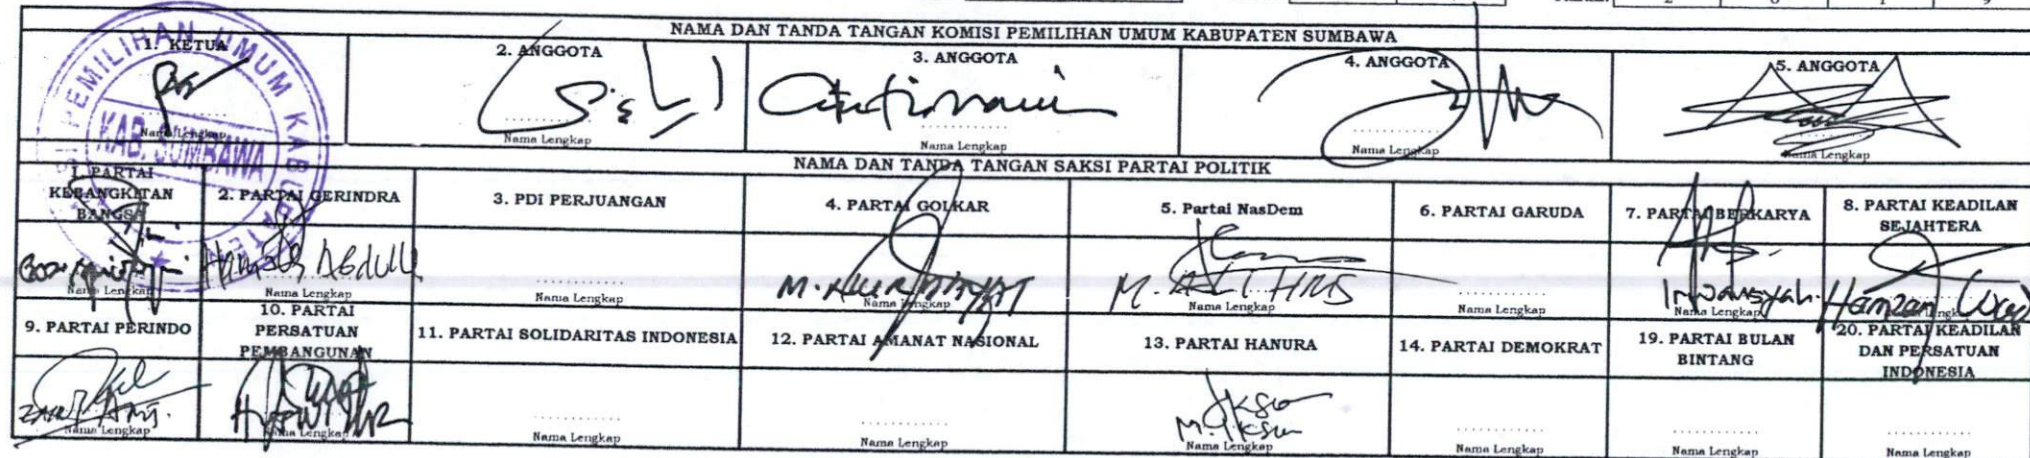 NAMA DAN TANDA TANGAN KOMISI PEMILIHAN UMUM KABUPATEN SUMBAWA
1. KETUA
2. ANGGOTA
3. ANGGOTA
4. ANGGOTA
5. ANGGOTA
PEMILIHAN UMUM KABUPATEN
KAB. SUMBAWA
Nama Lengkap
Nama Lengkap
Nama Lengkap
Nama Lengkap
Nama Lengkap
NAMA DAN TANDA TANGAN SAKSI PARTAI POLITIK
1. PARTAI
KEBANGKITAN
BANGSA
2. PARTAI GERINDRA
3. PDI PERJUANGAN
4. PARTAI GOLKAR
5. Partai NasDem
6. PARTAI GARUDA
7. PARTAI BERKARYA
8. PARTAI KEADILAN
SEJAHTERA
Irwansyah
Nama Lengkap
Nama Lengkap
Nama Lengkap
Nama Lengkap
Nama Lengkap
Nama Lengkap
Nama Lengkap
9. PARTAI PERINDO
10. PARTAI
PERSATUAN
PEMBANGUNAN
11. PARTAI SOLIDARITAS INDONESIA
12. PARTAI AMANAT NASIONAL
13. PARTAI HANURA
14. PARTAI DEMOKRAT
19. PARTAI BULAN
BINTANG
20. PARTAI KEADILAN
DAN PERSATUAN
INDONESIA
Nama Lengkap
Nama Lengkap
Nama Lengkap
Nama Lengkap
Nama Lengkap
Nama Lengkap
Nama Lengkap
Nama Lengkap